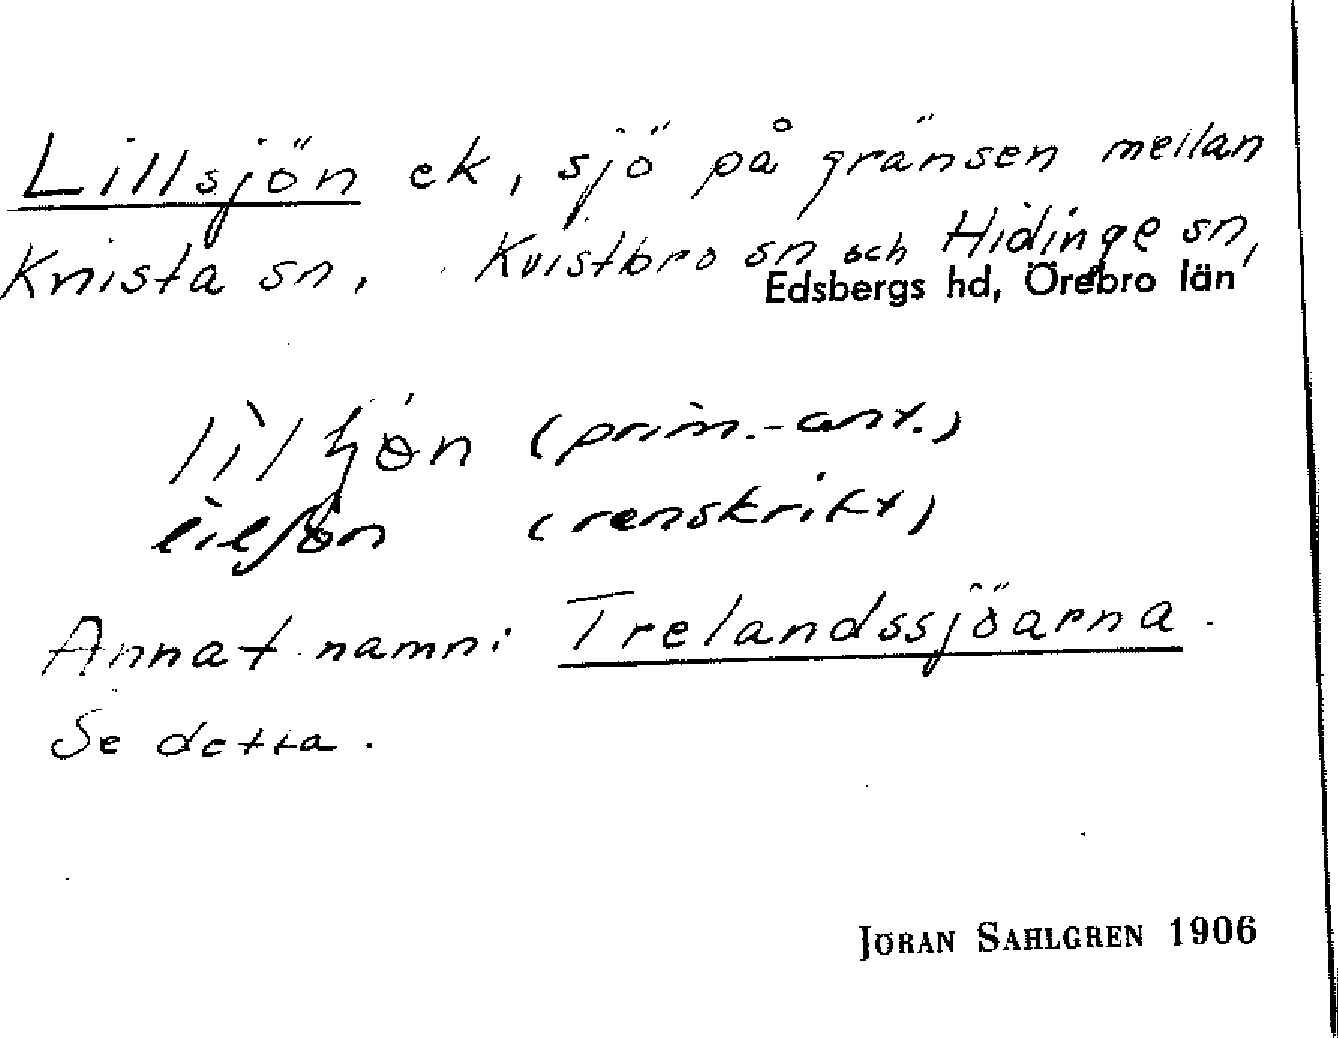 Lillsjön ek, sjö på gränsen mellan
Knista sn, Kvistbro sn och Hidinge sn,
Edsbergs hd, Örebro län
(prim.-ant.)
(renskrift)
Annat namn: Trelandssjöarna.
Se detta.
JÖRAN SAHLGREN 1906